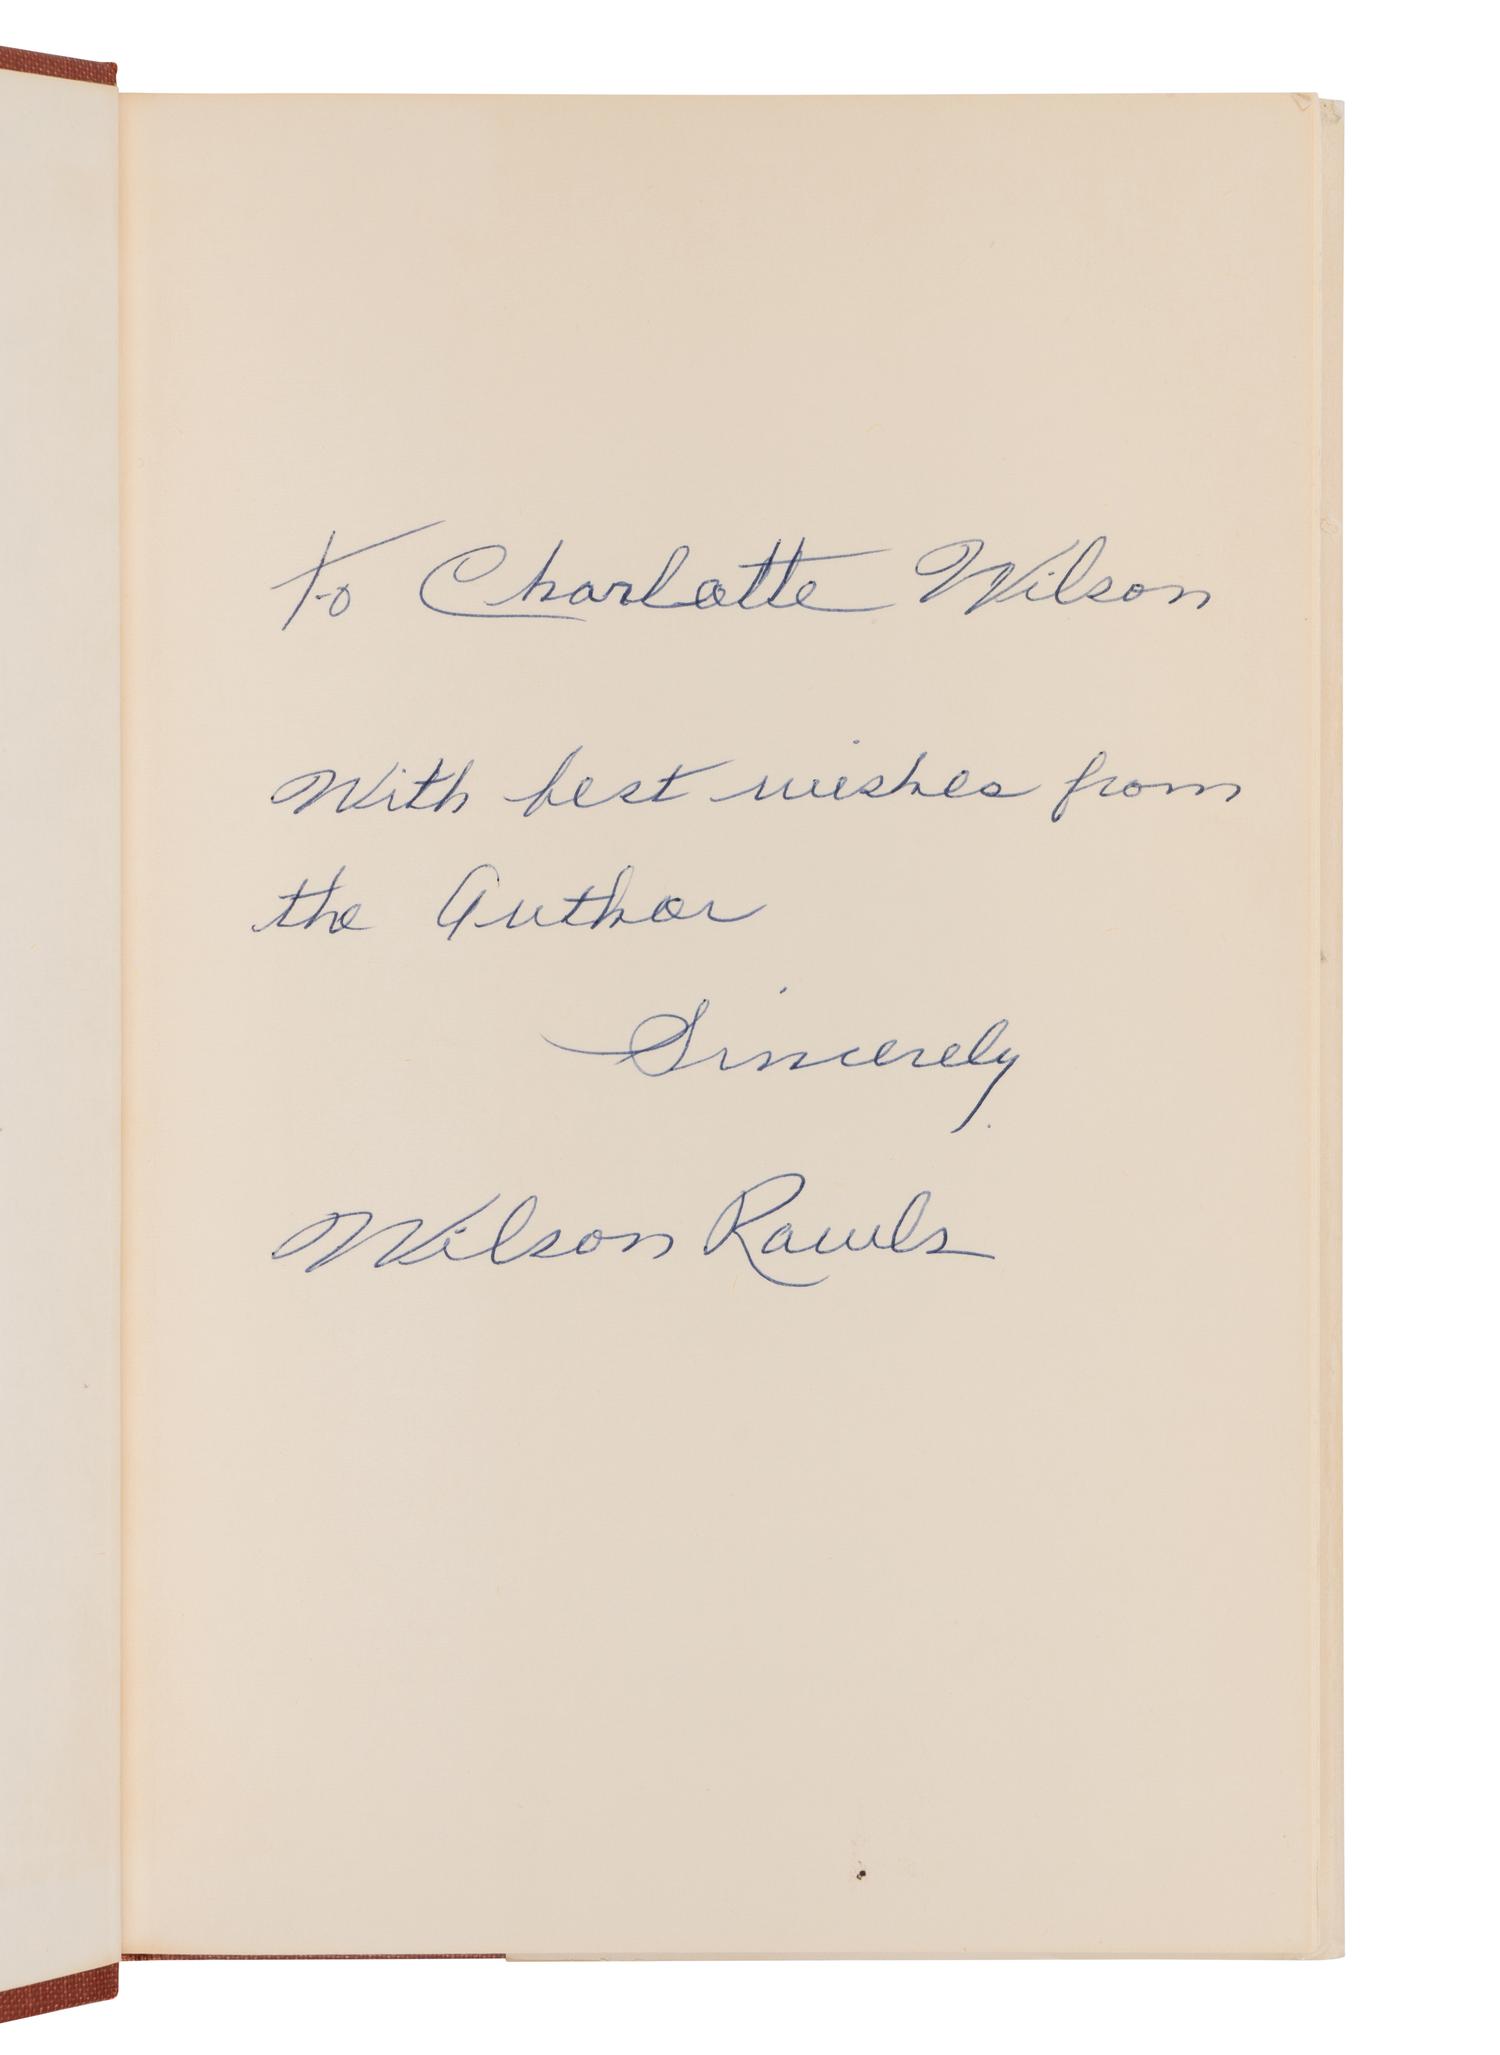 To Charlotte Wilson
With best wishes from
the Author
Sincerely
Wilson Rawls